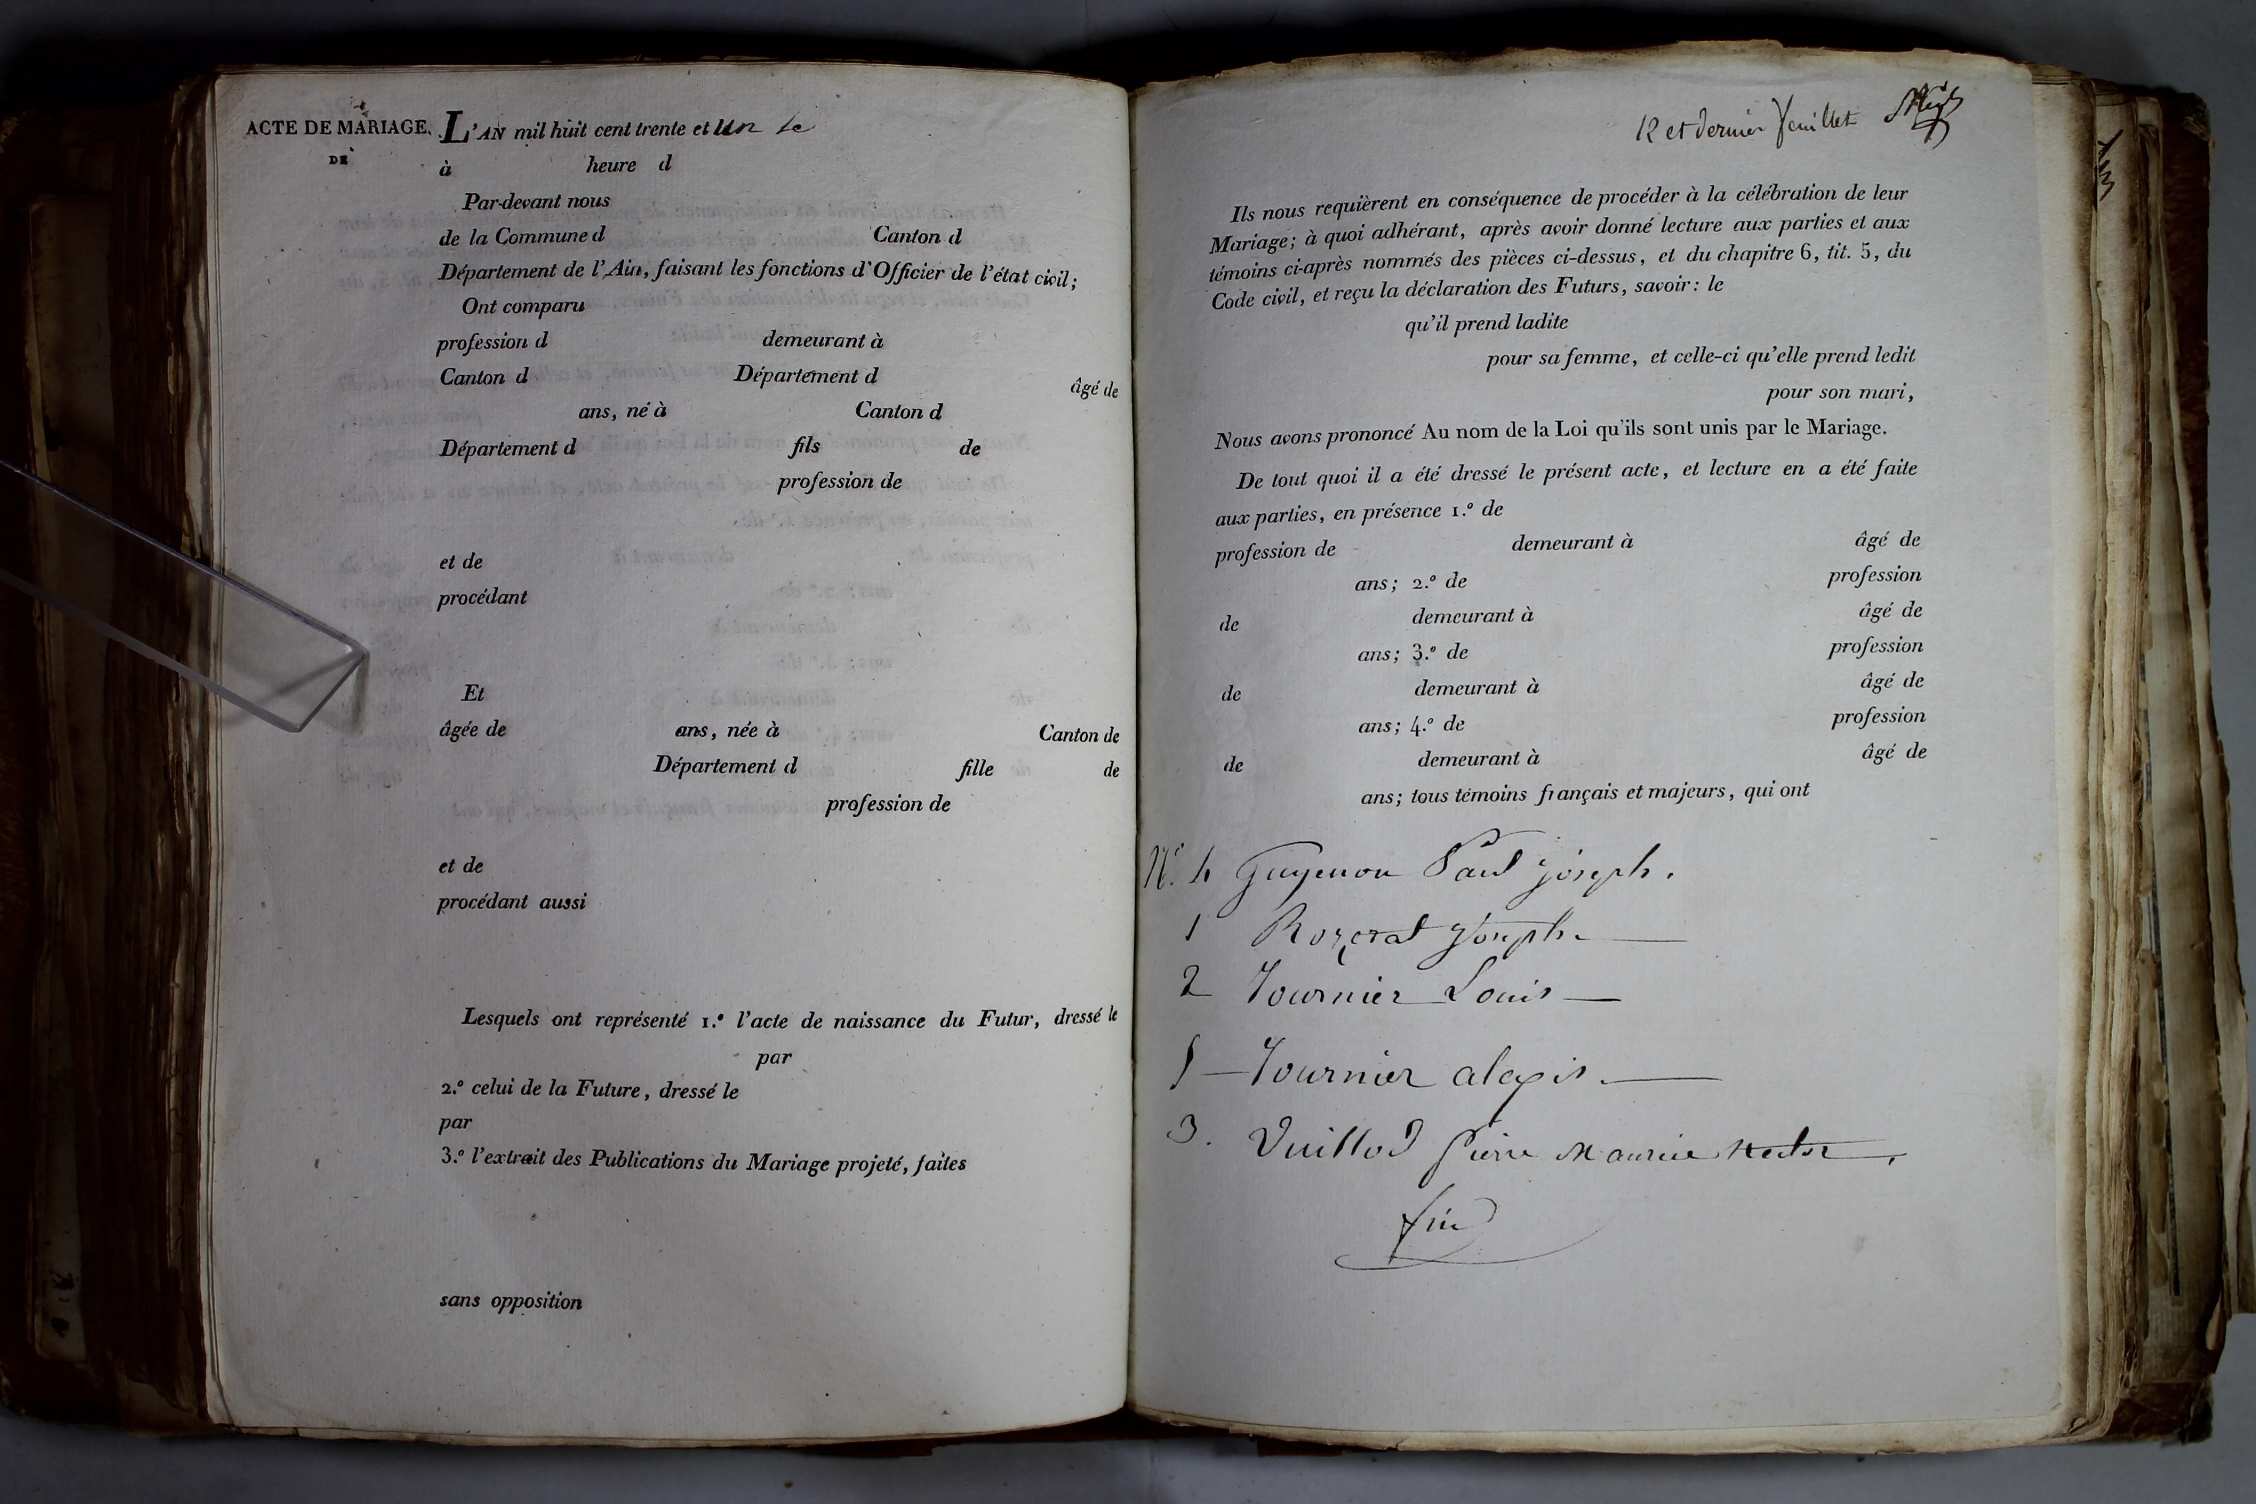 ACTE DE MARIAGE.
DE
L'AN mil huit cent trente et Un le
à heure d
Par-devant nous
de la Commune d Canton d
Département de l'Ain, faisant les fonctions d'Officier de l'état civil;
Ont comparu
profession d demeurant à
Canton d Département d âgé de
ans, né à Canton d
Département d fils de
profession de
et de
procédant
Et
âgée de ans, née à Canton de
Département d fille de
profession de
et de
procédant aussi
Lesquels ont représenté 1.º l'acte de naissance du Futur, dressé le
par
2.º celui de la Future, dressé le
par
3.º l'extrait des Publications du Mariage projeté, faites
sans opposition
12 et dernier feuillet
Ils nous requièrent en conséquence de procéder à la célébration de leur
Mariage; à quoi adhérant, après avoir donné lecture aux parties et aux
témoins ci-après nommés des pièces ci-dessus, et du chapitre 6, tit. 5, du
Code civil, et reçu la déclaration des Futurs, savoir: le
qu'il prend ladite
pour sa femme, et celle-ci qu'elle prend ledit
pour son mari,
Nous avons prononcé Au nom de la Loi qu'ils sont unis par le Mariage.
De tout quoi il a été dressé le présent acte, et lecture en a été faite
aux parties, en présence 1.º de
profession de demeurant à âgé de
ans; 2.º de profession
de demeurant à âgé de
ans; 3.º de profession
de demeurant à âgé de
ans; 4.º de profession
de demeurant à âgé de
ans; tous témoins français et majeurs, qui ont
N.º 4 Guyenon Paul joseph.
1 Rozerat Joseph.
2 Tournier Louis
5 Tournier alexis.
3. Vuillod Pierre Maurice
fin